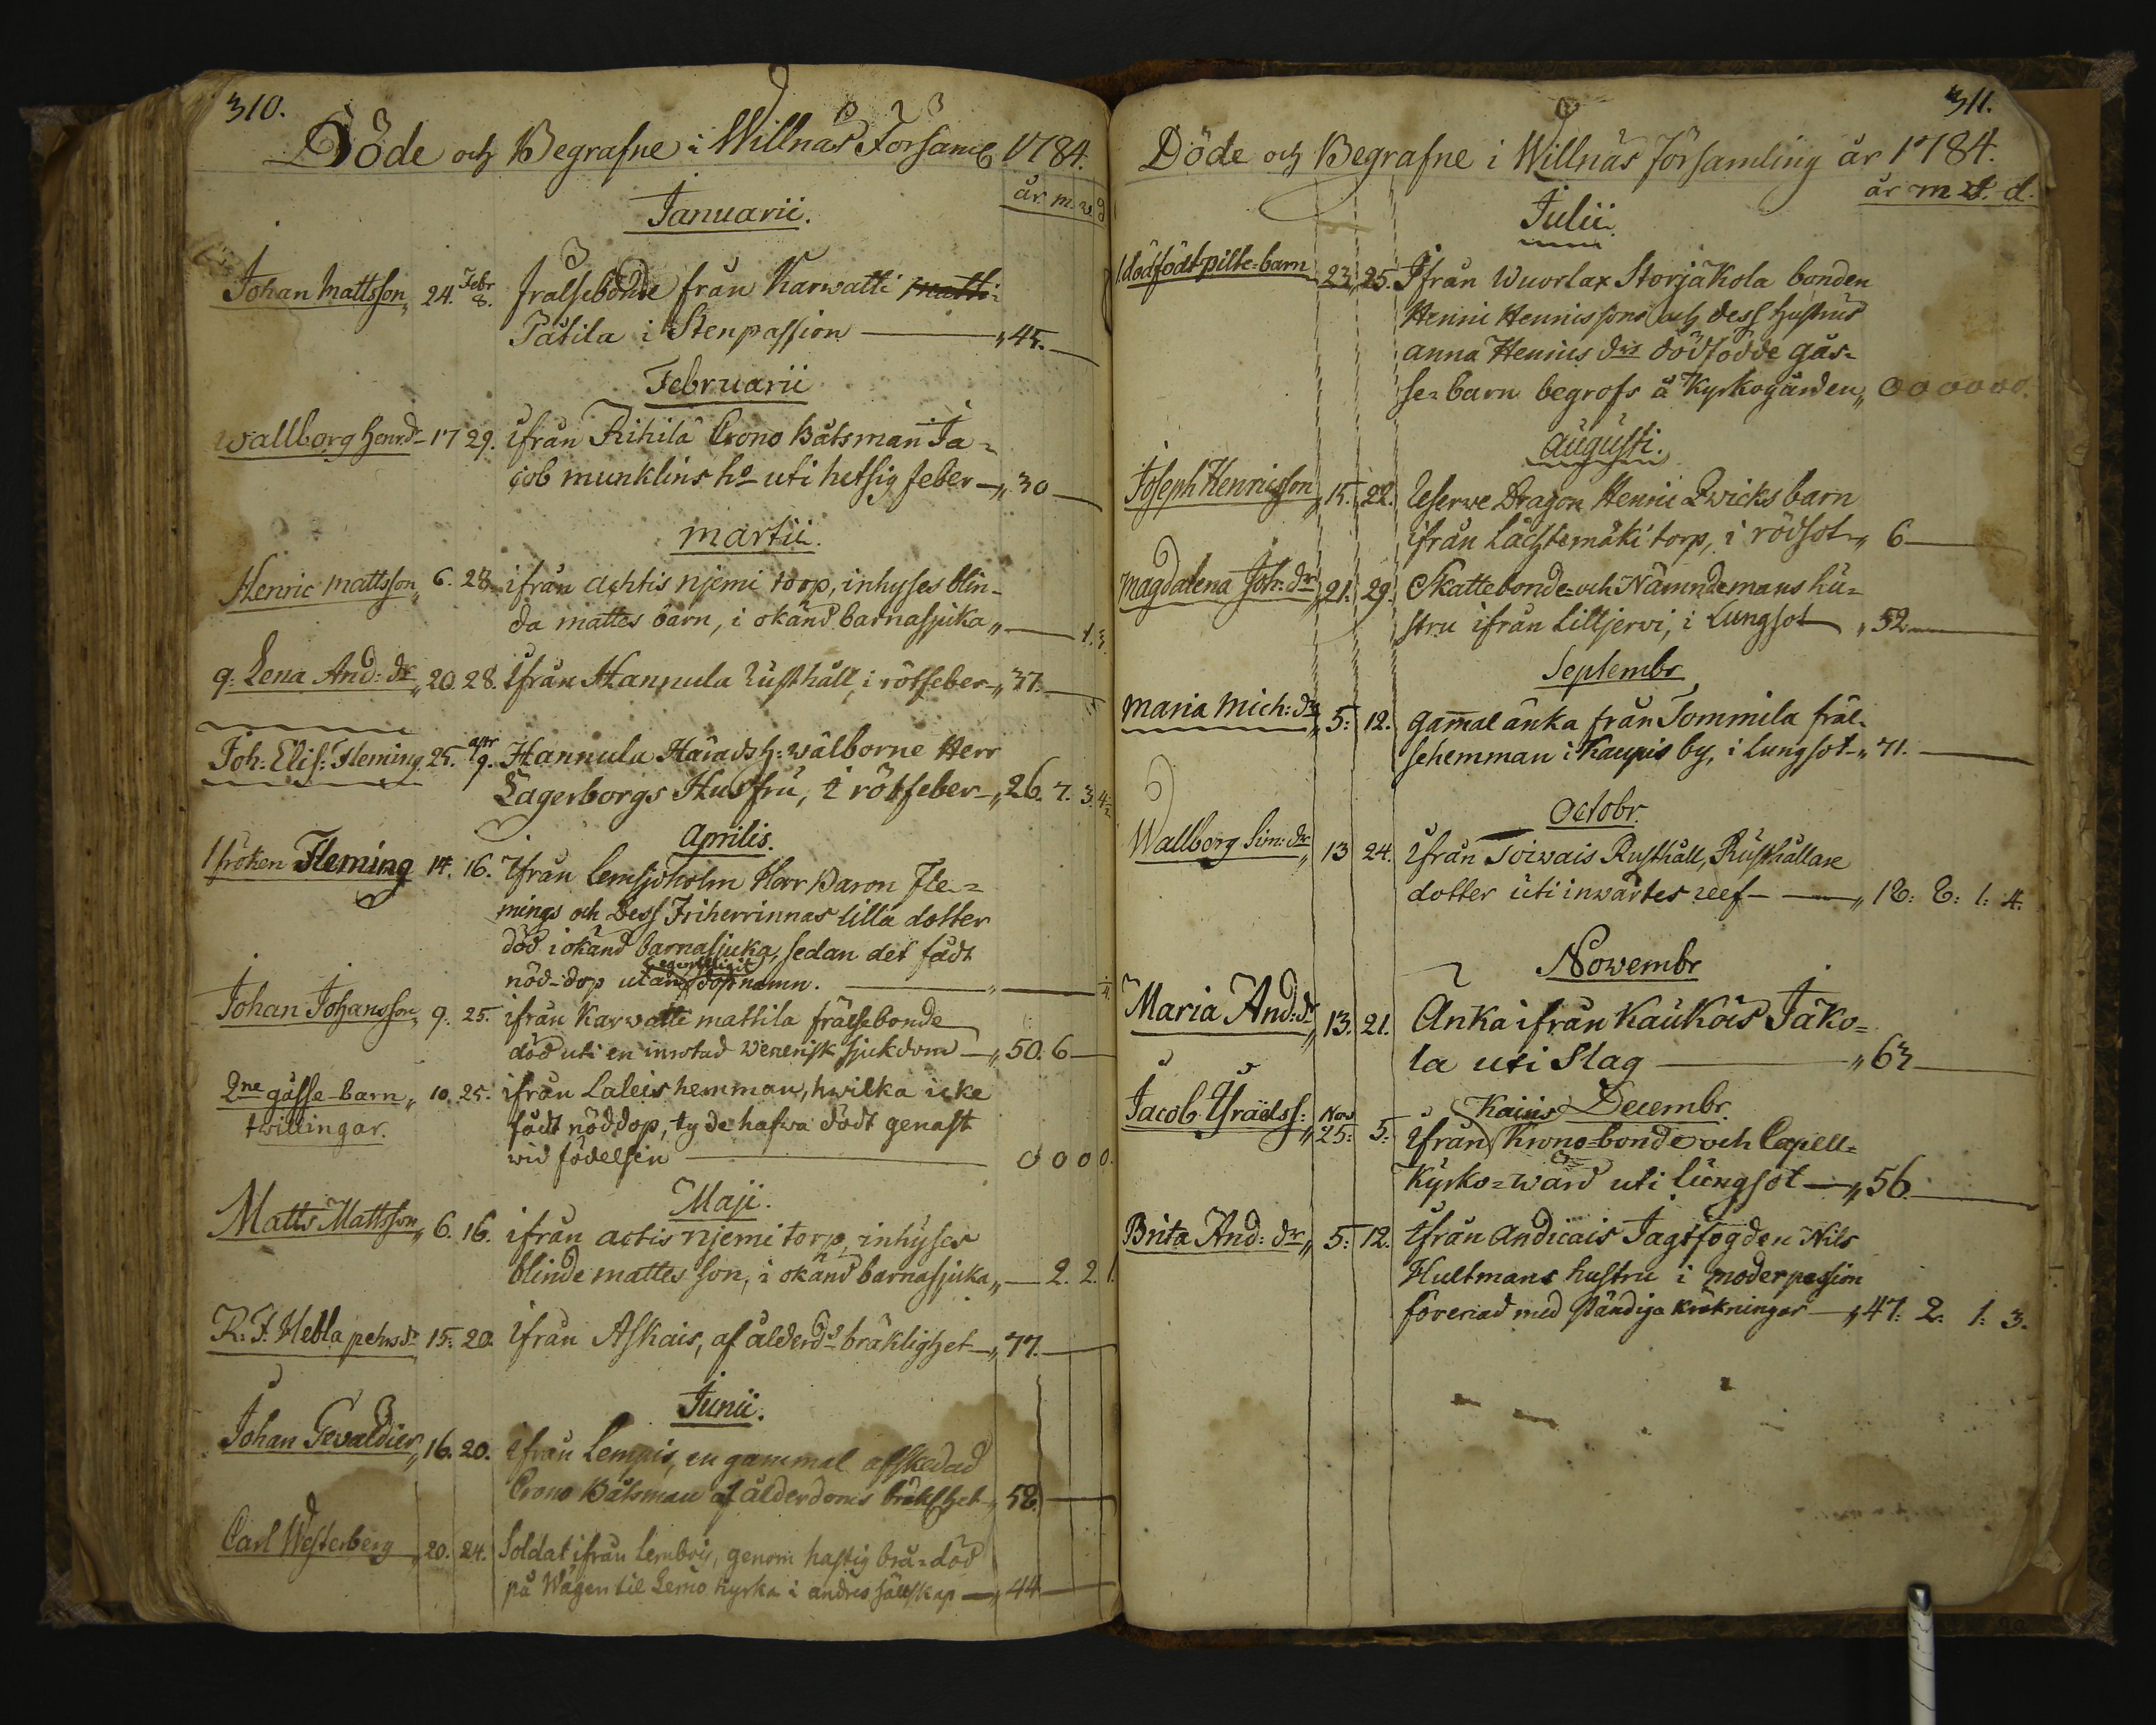 310.
Döde och Begrafne i Willnäs Församl 1784.
år. m. v. d
Januarii.
Johan Mattsson „ 24. Febr 8. frälsebonde från Karwatti Matti-
Pätila i Stenpassion „ 45.
Februarii
Wallborg Henrdr 17 29. ifrån Rihilä Crono Båtsman Ja=
cob munklins ho uti hetsig feber „ 30
Martii.
Henric Mattsson „ 6. 28. ifrån Achtis njemi torp, inhyses blin-
da mattes barn, i okänd barnasjuka „ 1. 3.
q: Lena And: dr „ 20. 28. ifrån Hannula Rusthåll, i rötfeber „ 37.
Joh: Elis: Fleming. 25. apr 9. Hannula Häradsh: wälborne Herr
Lagerborgs Husfru, i rötfeber „ 26. 7. 3. 4
Aprilis.
1 fröken Fleming 14. 16. Ifrån Lemsjöholm Herr Baron Fle=
mings och Dess Friherrinnas lilla dotter
död i okänd barnasjuka, sedan det fådt
nöd-dop utan dopnamn. „
Johan Johansson „ 9. 25. ifrån Karwatti mattila frälsebonde
död uti en inrotad Wenerisk sjukdom „ 50. 6
2ne gåsse-barn „ 10. 25. ifrån Laleis hemman, hwilka icke
twillingar. fådt nöddop, ty de hafwa dödt genast
wid födelsen 0 0 0 0.
Maji.
Matts Mattsson „ 6. 16. ifrån actis njemi torp, inhyses
blinde mattes son, i okänd barnasjuka „ 2. 2. 1.
R: F. Hebla pehrsdr 15: 20. ifrån Askais, af ålderds bräklighet „ 77.
Junii.
Johan Gevaldier „ 16. 20. ifrån Lempis, en gammal afskedad
Crono Båtsman af ålderdoms bräklhet „ 58.
Carl Westerberg „ 20. 24. Soldat ifrån Lembois, genom hastig brå=död
på Wägen til Lemo kyrka i andras sällskap „ 44
311.
Döde och Begrafne i Willnäs Församling år 1784.
år m v. d.
Julii
1 dödfödt pilte=barn 23 „ 25. Ifrån Wuorlax Storjäkola bonden
Henric Henrissons och dess hustrus
Anna Henrics drs dödfödde gås-
se=barn begrofs å Kyrkogården „ 0 0 0 0 0 0.
Augusti.
Joseph Henrisson „ 15. 22. Reserwe Dragon Henric Qwicks barn
ifrån Lächtemäki torp, i rödsot „ 6
Magdalena Joh: dr „ 21. 29. Skattebonde- och Nämndemans hu=
stru ifrån Lilljerwi, i Lungsot „ 52
Septembr
Maria Mich: dr „ 5: 12. gammal änka från Tommila fräl-
sehemman i Kaupis by, i Lungsot „ 71.
Octobr.
Wallborg Sim: dr „ 13 24. ifrån Toiwais Rusthåll, Rusthållare
dotter uti inwärtes reef „ 18: 8: 1: 4.
Novembr
Maria And: dr „ 13. 21. Änka ifrån Kaukois Jäko=
la uti Slag „ 63
Decembr.
Kaiis
Jacob Ysraelss: „ Nov 25: 5: Ifrån Krono=bonde och Capell=
Kyrko=wärd uti lungsot „ 56.
Brita And: dr „ 5: 12. Ifrån Andicais Jagtfogden Nils
Hultmans hustru i moderpassion
förenad med ständiga kräkningar „ 47: 2: 1: 3.